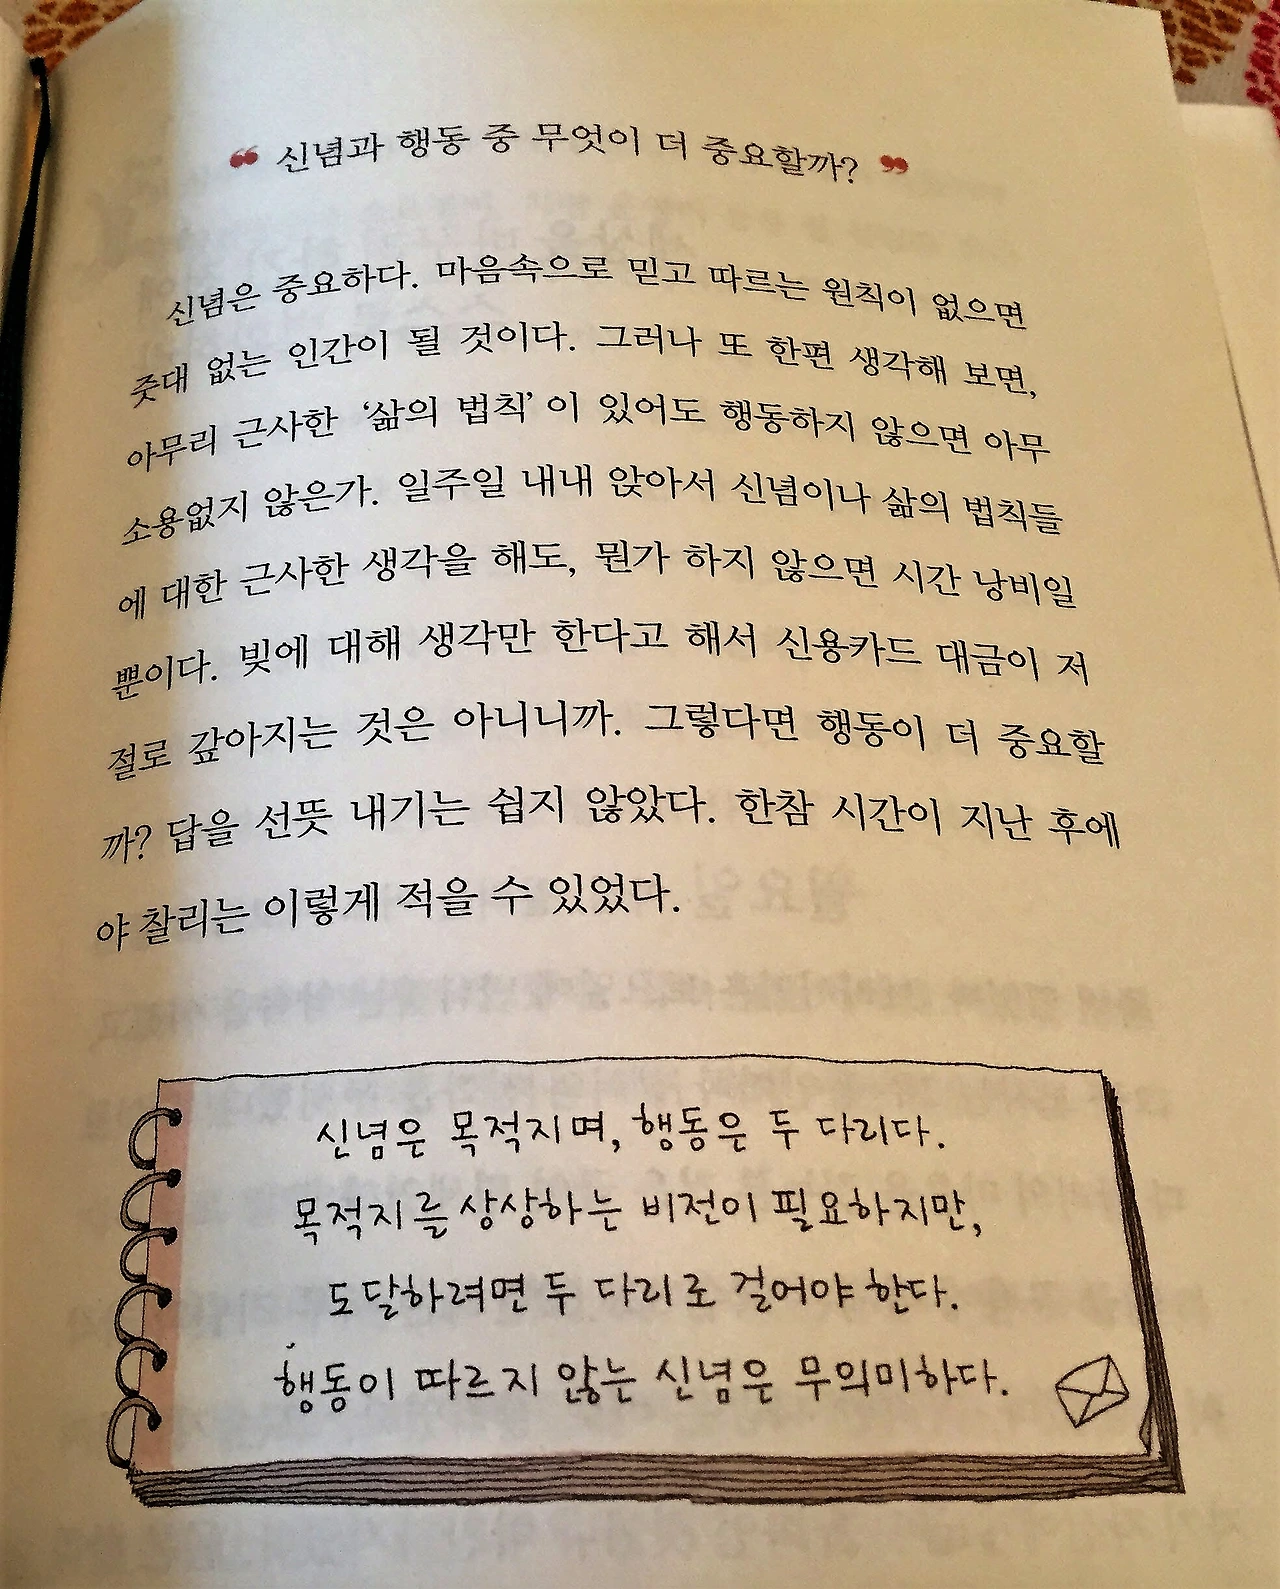 “ 신념과 행동 중 무엇이 더 중요할까? ”
신념은 중요하다. 마음속으로 믿고 따르는 원칙이 없으면
줏대 없는 인간이 될 것이다. 그러나 또 한편 생각해 보면,
아무리 근사한 ‘삶의 법칙’이 있어도 행동하지 않으면 아무
소용없지 않은가. 일주일 내내 앉아서 신념이나 삶의 법칙들
에 대한 근사한 생각을 해도, 뭔가 하지 않으면 시간 낭비일
뿐이다. 빚에 대해 생각만 한다고 해서 신용카드 대금이 저
절로 갚아지는 것은 아니니까. 그렇다면 행동이 더 중요할
까? 답을 선뜻 내기는 쉽지 않았다. 한참 시간이 지난 후에
야 찰리는 이렇게 적을 수 있었다.
신념은 목적지며, 행동은 두 다리다.
목적지를 상상하는 비전이 필요하지만,
도달하려면 두 다리로 걸어야 한다.
행동이 따르지 않는 신념은 무의미하다.